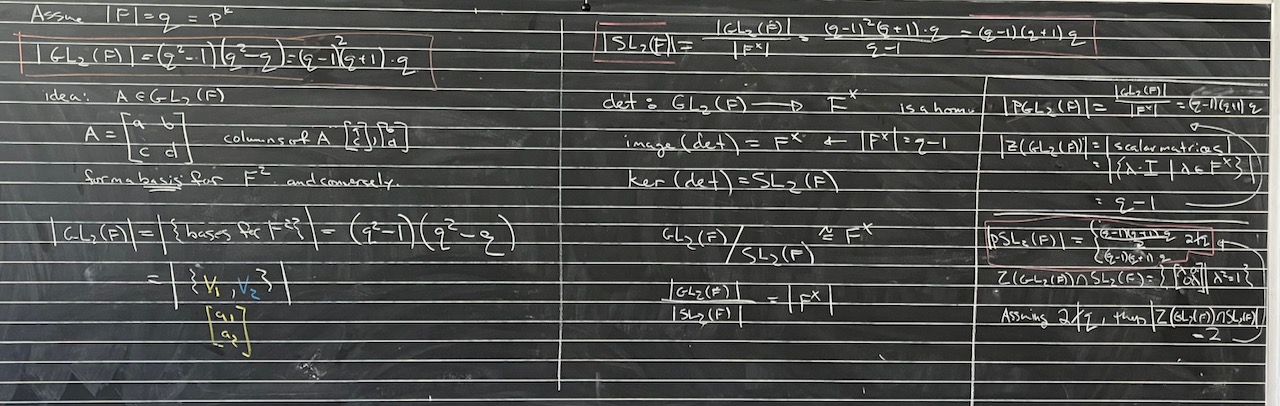 Assume |F| = q = p^k
|GL₂(F)| = (q²-1)(q²-q) = (q-1)²(q+1)·q
idea: A ∈ GL₂(F)
A = [a b; c d] columns of A [a; c], [b; d]
form a basis for F² and conversely.
|GL₂(F)| = |{bases for F²}| = (q²-1)(q²-q)
= |{v₁, v₂}|
[a₁; a₂]
|SL₂(F)| = |GL₂(F)| / |F^x| = (q-1)²(q+1)·q / (q-1) = (q-1)(q+1)q
det : GL₂(F) → F^x is a homo
image(det) = F^x ← |F^x| = q-1
ker(det) = SL₂(F)
GL₂(F) / SL₂(F) ≅ F^x
|GL₂(F)| / |SL₂(F)| = |F^x|
|PGL₂(F)| = |GL₂(F)| / |F^x| = (q-1)(q+1)q
|Z(GL₂(F))| = |scalar matrices|
= |{λ·I | λ ∈ F^x}|
= q-1
|PSL₂(F)| = { (q-1)(q+1)q / 2 2∤q
(q-1)(q+1)q
Z(GL₂(F)) ∩ SL₂(F) = {[λ 0; 0 λ] | λ² = 1}
Assuming 2∤q, then |Z(GL₂(F)) ∩ SL₂(F)|
= 2